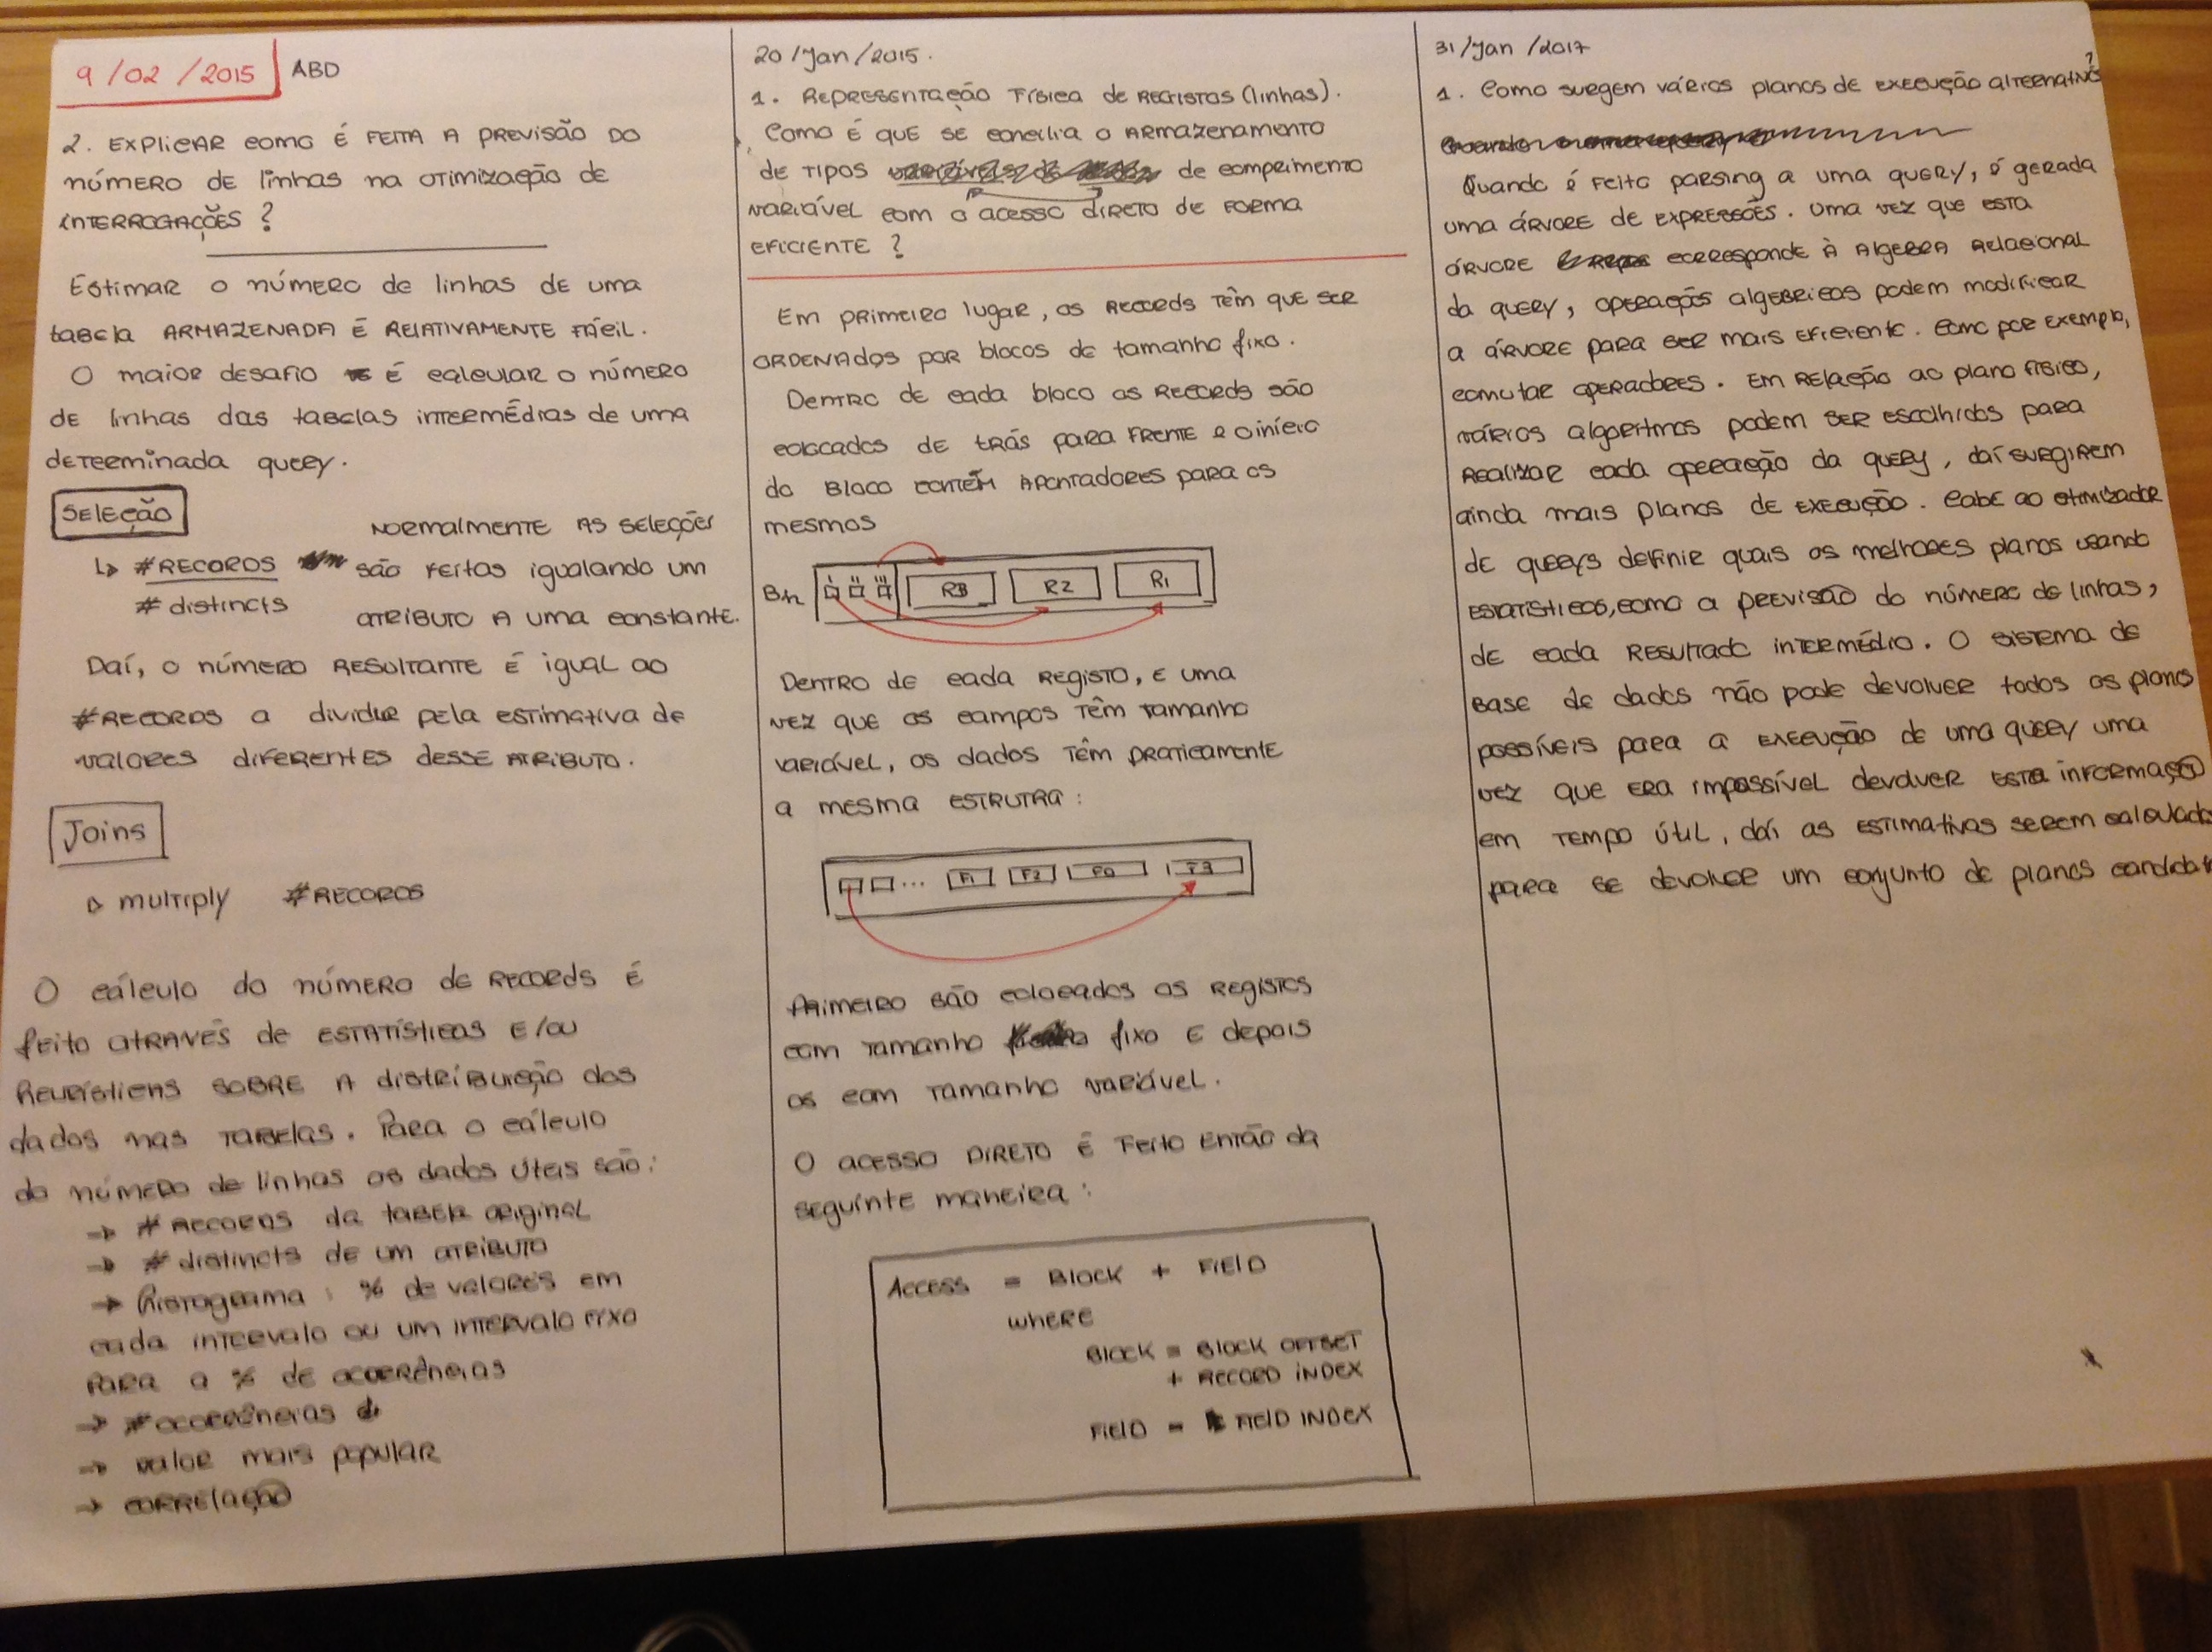 9/02/2015 ABD
2. Explicar como é feita a previsão do
número de linhas na otimização de
interrogações?
Estimar o número de linhas de uma
tabela armazenada é relativamente fácil.
O maior desafio é calcular o número
de linhas das tabelas intermédias de uma
determinada query.
Seleção
↳ #RECORDS
# distincts
Normalmente as seleções
são feitas igualando um
atributo a uma constante.
Daí, o número resultante é igual ao
#RECORDS a dividir pela estimativa de
valores diferentes desse atributo.
Joins
▷ multiply #RECORDS
O cálculo do número de records é
feito através de estatísticas e/ou
heurísticas sobre a distribuição dos
dados nas tabelas. Para o cálculo
do número de linhas os dados úteis são:
→ # RECORDS da tabela original
→ # distincts de um atributo
→ histograma: % de valores em
cada intervalo ou um intervalo fixo
para a % de ocorrências
→ #ocorrências
→ valor mais popular
→ correlação
20/Jan/2015.
1. Representação física de registos (linhas).
Como é que se concilia o armazenamento
de tipos de comprimento
variável com o acesso direto de forma
eficiente?
Em primeiro lugar, os records têm que ser
ordenados por blocos de tamanho fixo.
Dentro de cada bloco os records são
colocados de trás para frente e o início
do bloco contém apontadores para os
mesmos
Bn I II III R3 R2 R1
Dentro de cada registo, e uma
vez que os campos têm tamanho
variável, os dados têm praticamente
a mesma estrutra:
... F1 F2 F3
Primeiro são colocados os registos
com tamanho fixo e depois
os com tamanho variável.
O acesso direto é feito então da
seguinte maneira:
Access = Block + Field
where
Block = Block offset
+ record index
Field = Field index
31/Jan/2017
1. Como surgem vários planos de execução alternativos?
Quando é feito parsing a uma query, é gerada
uma árvore de expressões. Uma vez que esta
árvore corresponde à algebra relacional
da query, operações algebricas podem modificar
a árvore para ser mais eficiente. Como por exemplo,
comutar operadores. Em relação ao plano físico,
vários algoritmos podem ser escolhidos para
realizar cada operação da query, daí surgirem
ainda mais planos de execução. Cabe ao otimizador
de querys definir quais os melhores planos usando
estatísticas, como a previsão do número de linhas,
de cada resultado intermédio. O sistema de
base de dados não pode devolver todos os planos
possíveis para a execução de uma query uma
vez que era impossível devolver esta informação
em tempo útil, daí as estimativas serem calculadas
para se devolver um conjunto de planos candidat